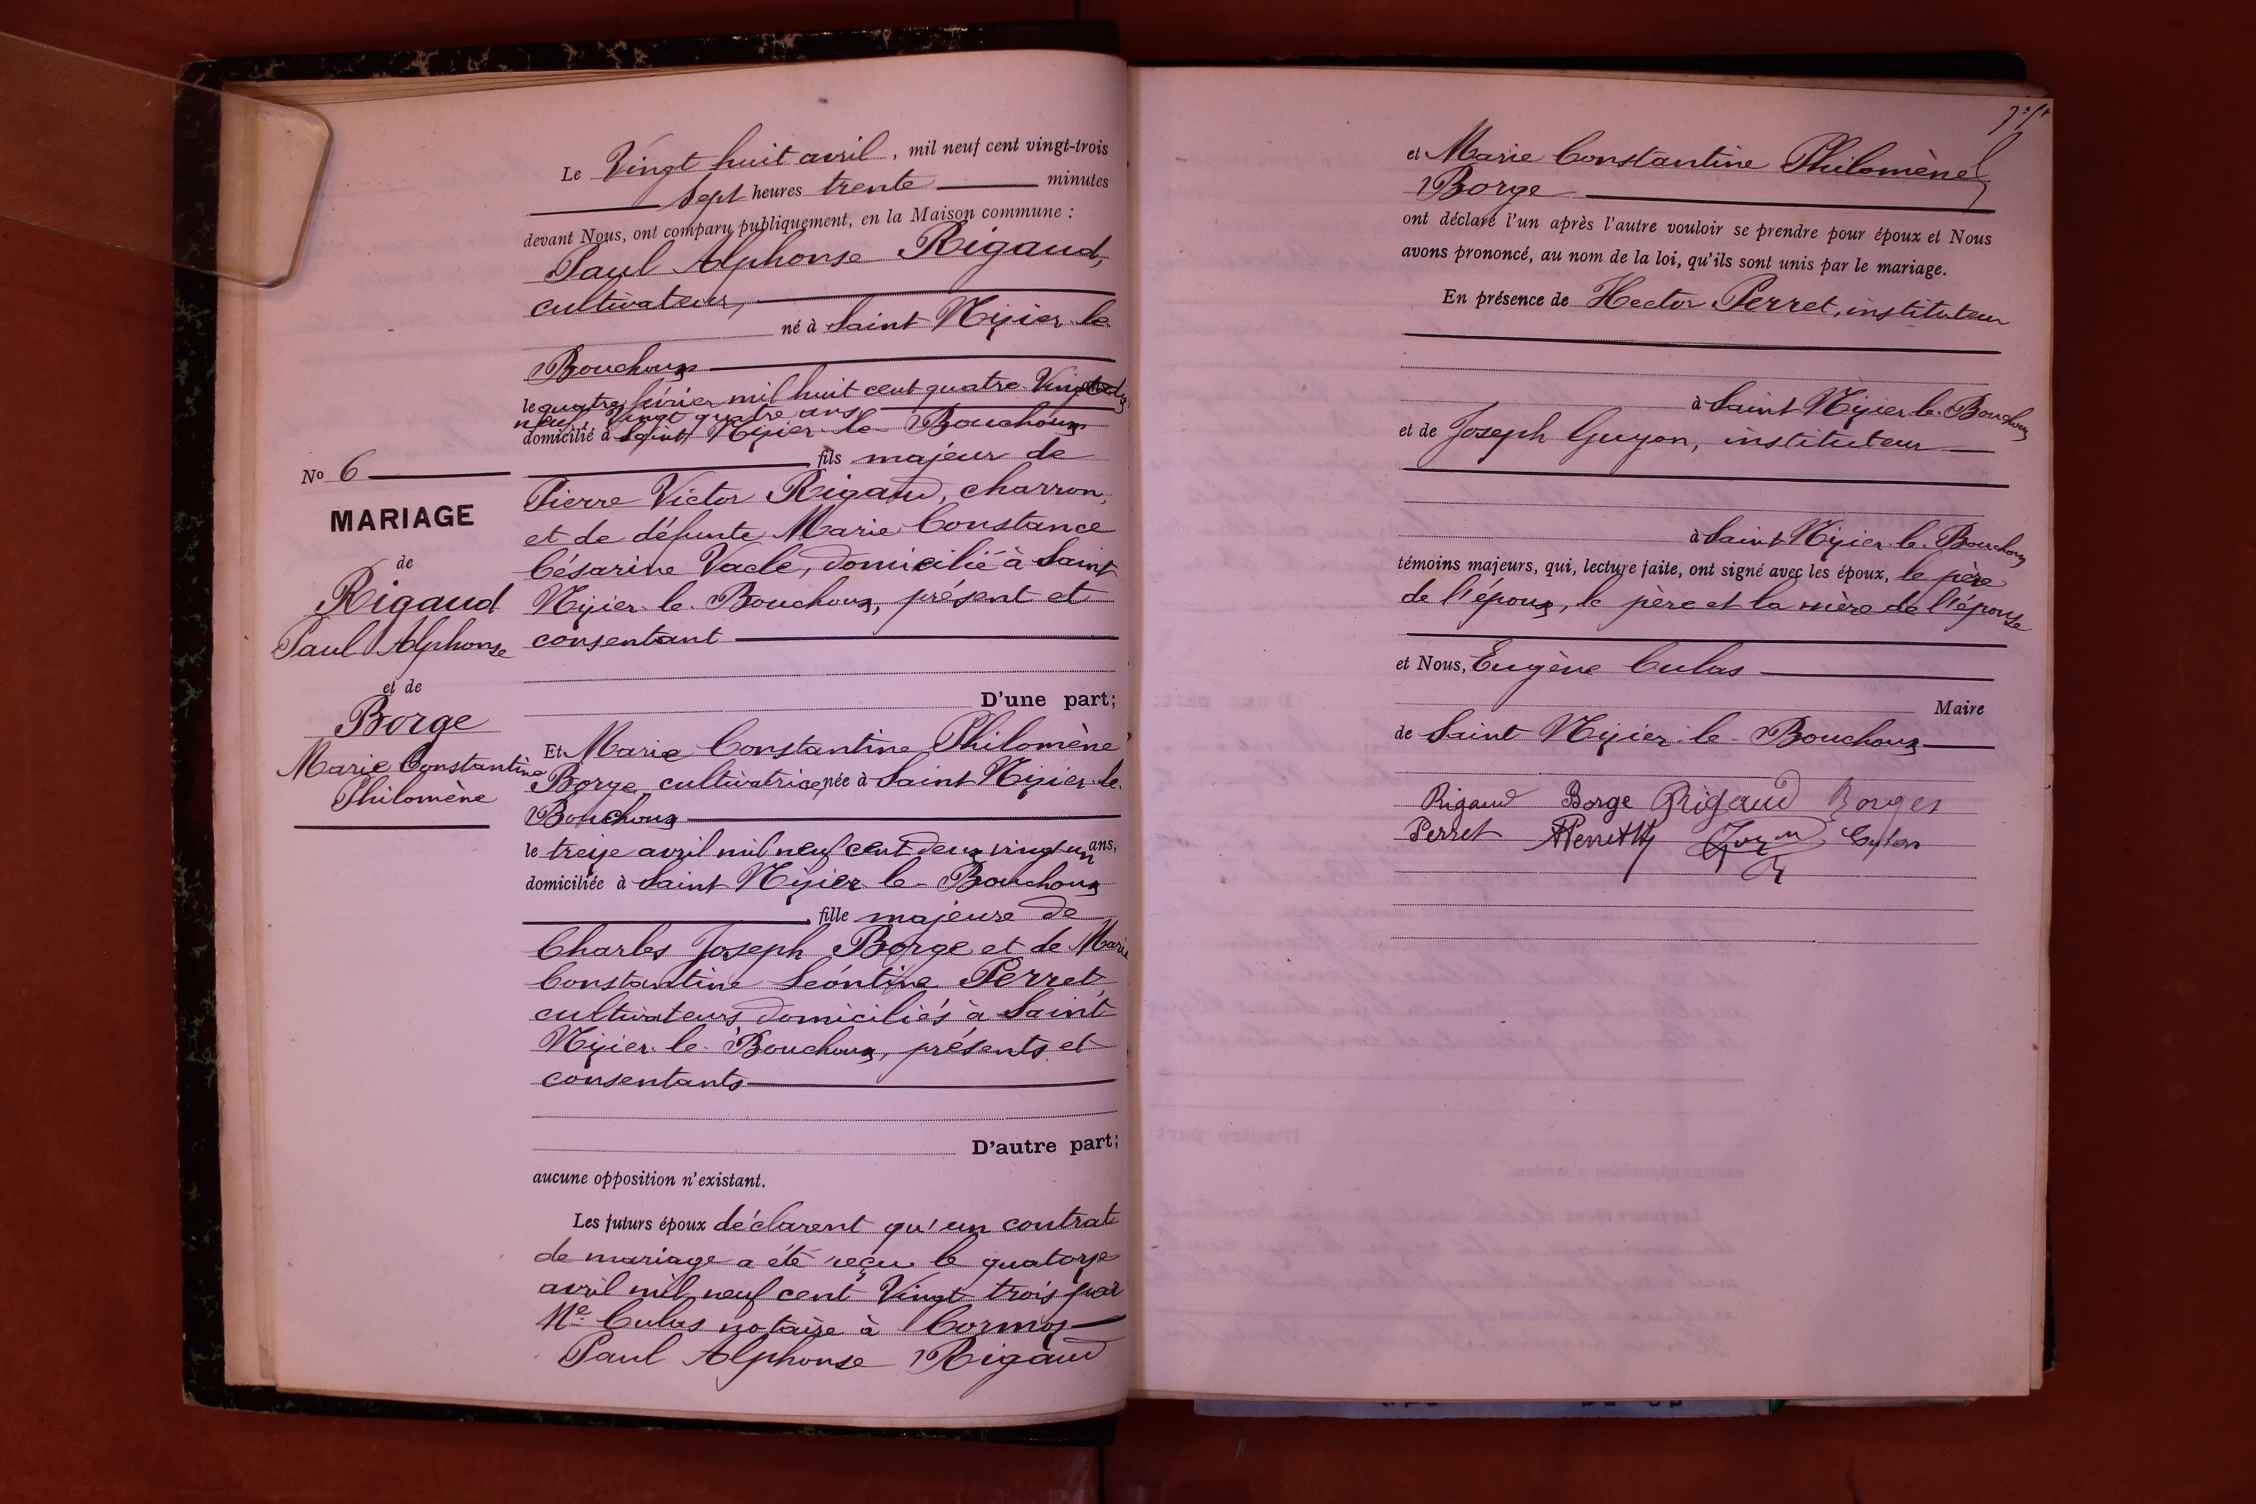 Le Vingt huit avril, mil neuf cent vingt-trois
Sept heures trente minutes
devant Nous, ont comparu publiquement, en la Maison commune :
Paul Alphonse Rigaud,
cultivateur,
né à Saint Nizier le
Bouchoux
le quatre février mil huit cent quatre Vingt
neuf Vingt quatre ans
domicilié à Saint Nizier le Bouchoux
fils majeur de
Pierre Victor Rigaud, charron,
et de défunte Marie Constance
Césarine Vacle, domicilié à Saint
Nizier le Bouchoux, présent et
consentant
D'une part;
Et Marie Constantine Philomène
Borge, cultivatrice, née à Saint Nizier le
Bouchoux
le treize avril mil neuf cent deux vingt un ans,
domiciliée à Saint Nizier le Bouchoux
fille majeure de
Charles Joseph Borge et de Marie
Constantine Léontine Perret,
cultivateurs, domiciliés à Saint
Nizier le Bouchoux, présents et
consentants
D'autre part;
aucune opposition n'existant.
Les futurs époux déclarent qu'un contrat
de mariage a été reçu le quatorze
avril mil neuf cent Vingt trois par
Me Culas notaire à Cormoz
Paul Alphonse Rigaud
No 6
MARIAGE
de
Rigaud
Paul Alphonse
et de
Borge
Marie Constantine
Philomène
et Marie Constantine Philomène
Borge
ont déclaré l'un après l'autre vouloir se prendre pour époux et Nous
avons prononcé, au nom de la loi, qu'ils sont unis par le mariage.
En présence de Hector Perret, instituteur
à Saint Nizier le Bouchoux
et de Joseph Guyon, instituteur
à Saint Nizier le Bouchoux
témoins majeurs, qui, lecture faite, ont signé avec les époux, le père
de l'époux, le père et la mère de l'épouse
et Nous, Eugène Culas
Maire
de Saint Nizier le Bouchoux
Rigaud Borge Rigaud Borges
Perret